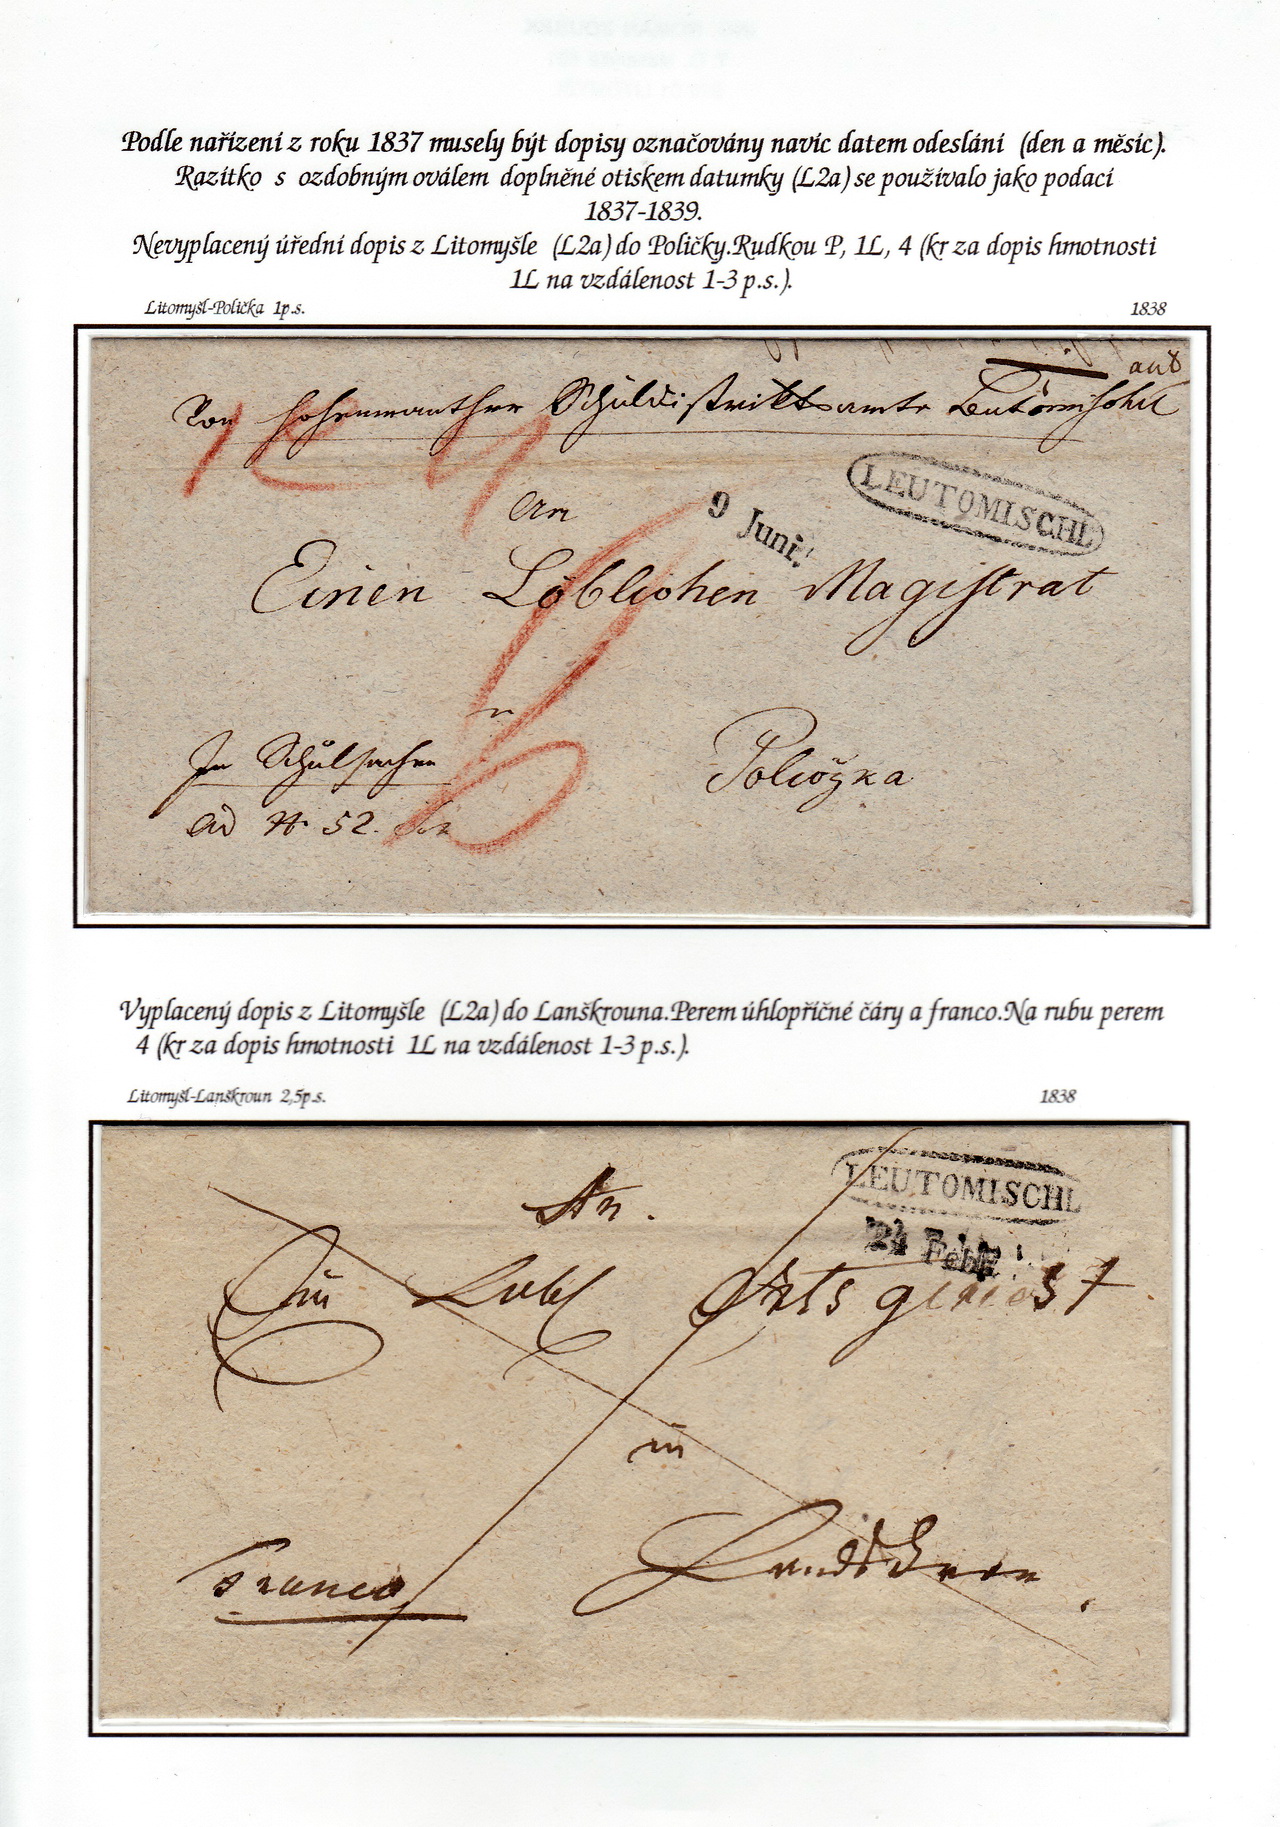 Podle nařízení z roku 1837 musely být dopisy označovány navíc datem odeslání (den a měsíc).
Razítko s ozdobným oválem doplněné otiskem datumky (L2a) se používalo jako podací
1837-1839.
Nevyplacený úřední dopis z Litomyšle (L2a) do Poličky.Rudkou P, 1L, 4 (kr za dopis hmotnosti
1L na vzdálenost 1-3 p.s.).
Litomyšl-Polička 1p.s.
1838
Von Hohenmauther Schuldistriktsamte Leutomischl
LEUTOMISCHL
An
9 Juni.
Einen Löblichen Magistrat
In Schulsachen
Poličzka
ad N 52.
Vyplacený dopis z Litomyšle (L2a) do Lanškrouna.Perem úhlopříčné čáry a franco.Na rubu perem
4 (kr za dopis hmotnosti 1L na vzdálenost 1-3 p.s.).
Litomyšl-Lanškroun 2,5p.s.
1838
LEUTOMISCHL
An.
24 Febr.
Ein Löbl Ortsgericht
in
Franco
Landskron